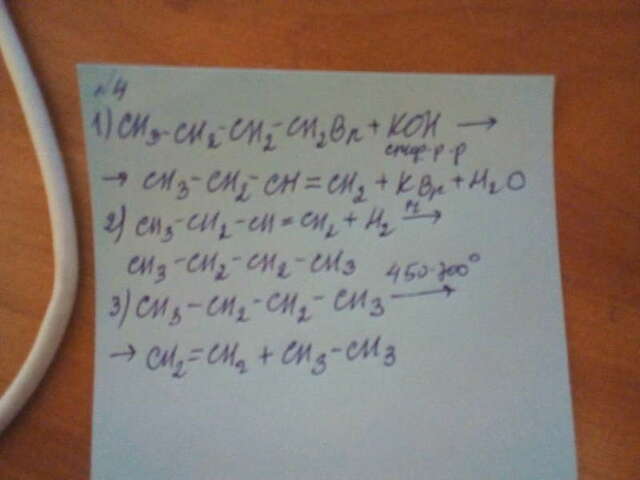 №4
1) CH3-CH2-CH2-CH2Br + KOH →
спирт. р-р
→ CH3-CH2-CH=CH2 + KBr + H2O
2) CH3-CH2-CH=CH2 + H2 →
CH3-CH2-CH2-CH3
450-700°
3) CH3-CH2-CH2-CH3 →
→ CH2=CH2 + CH3-CH3